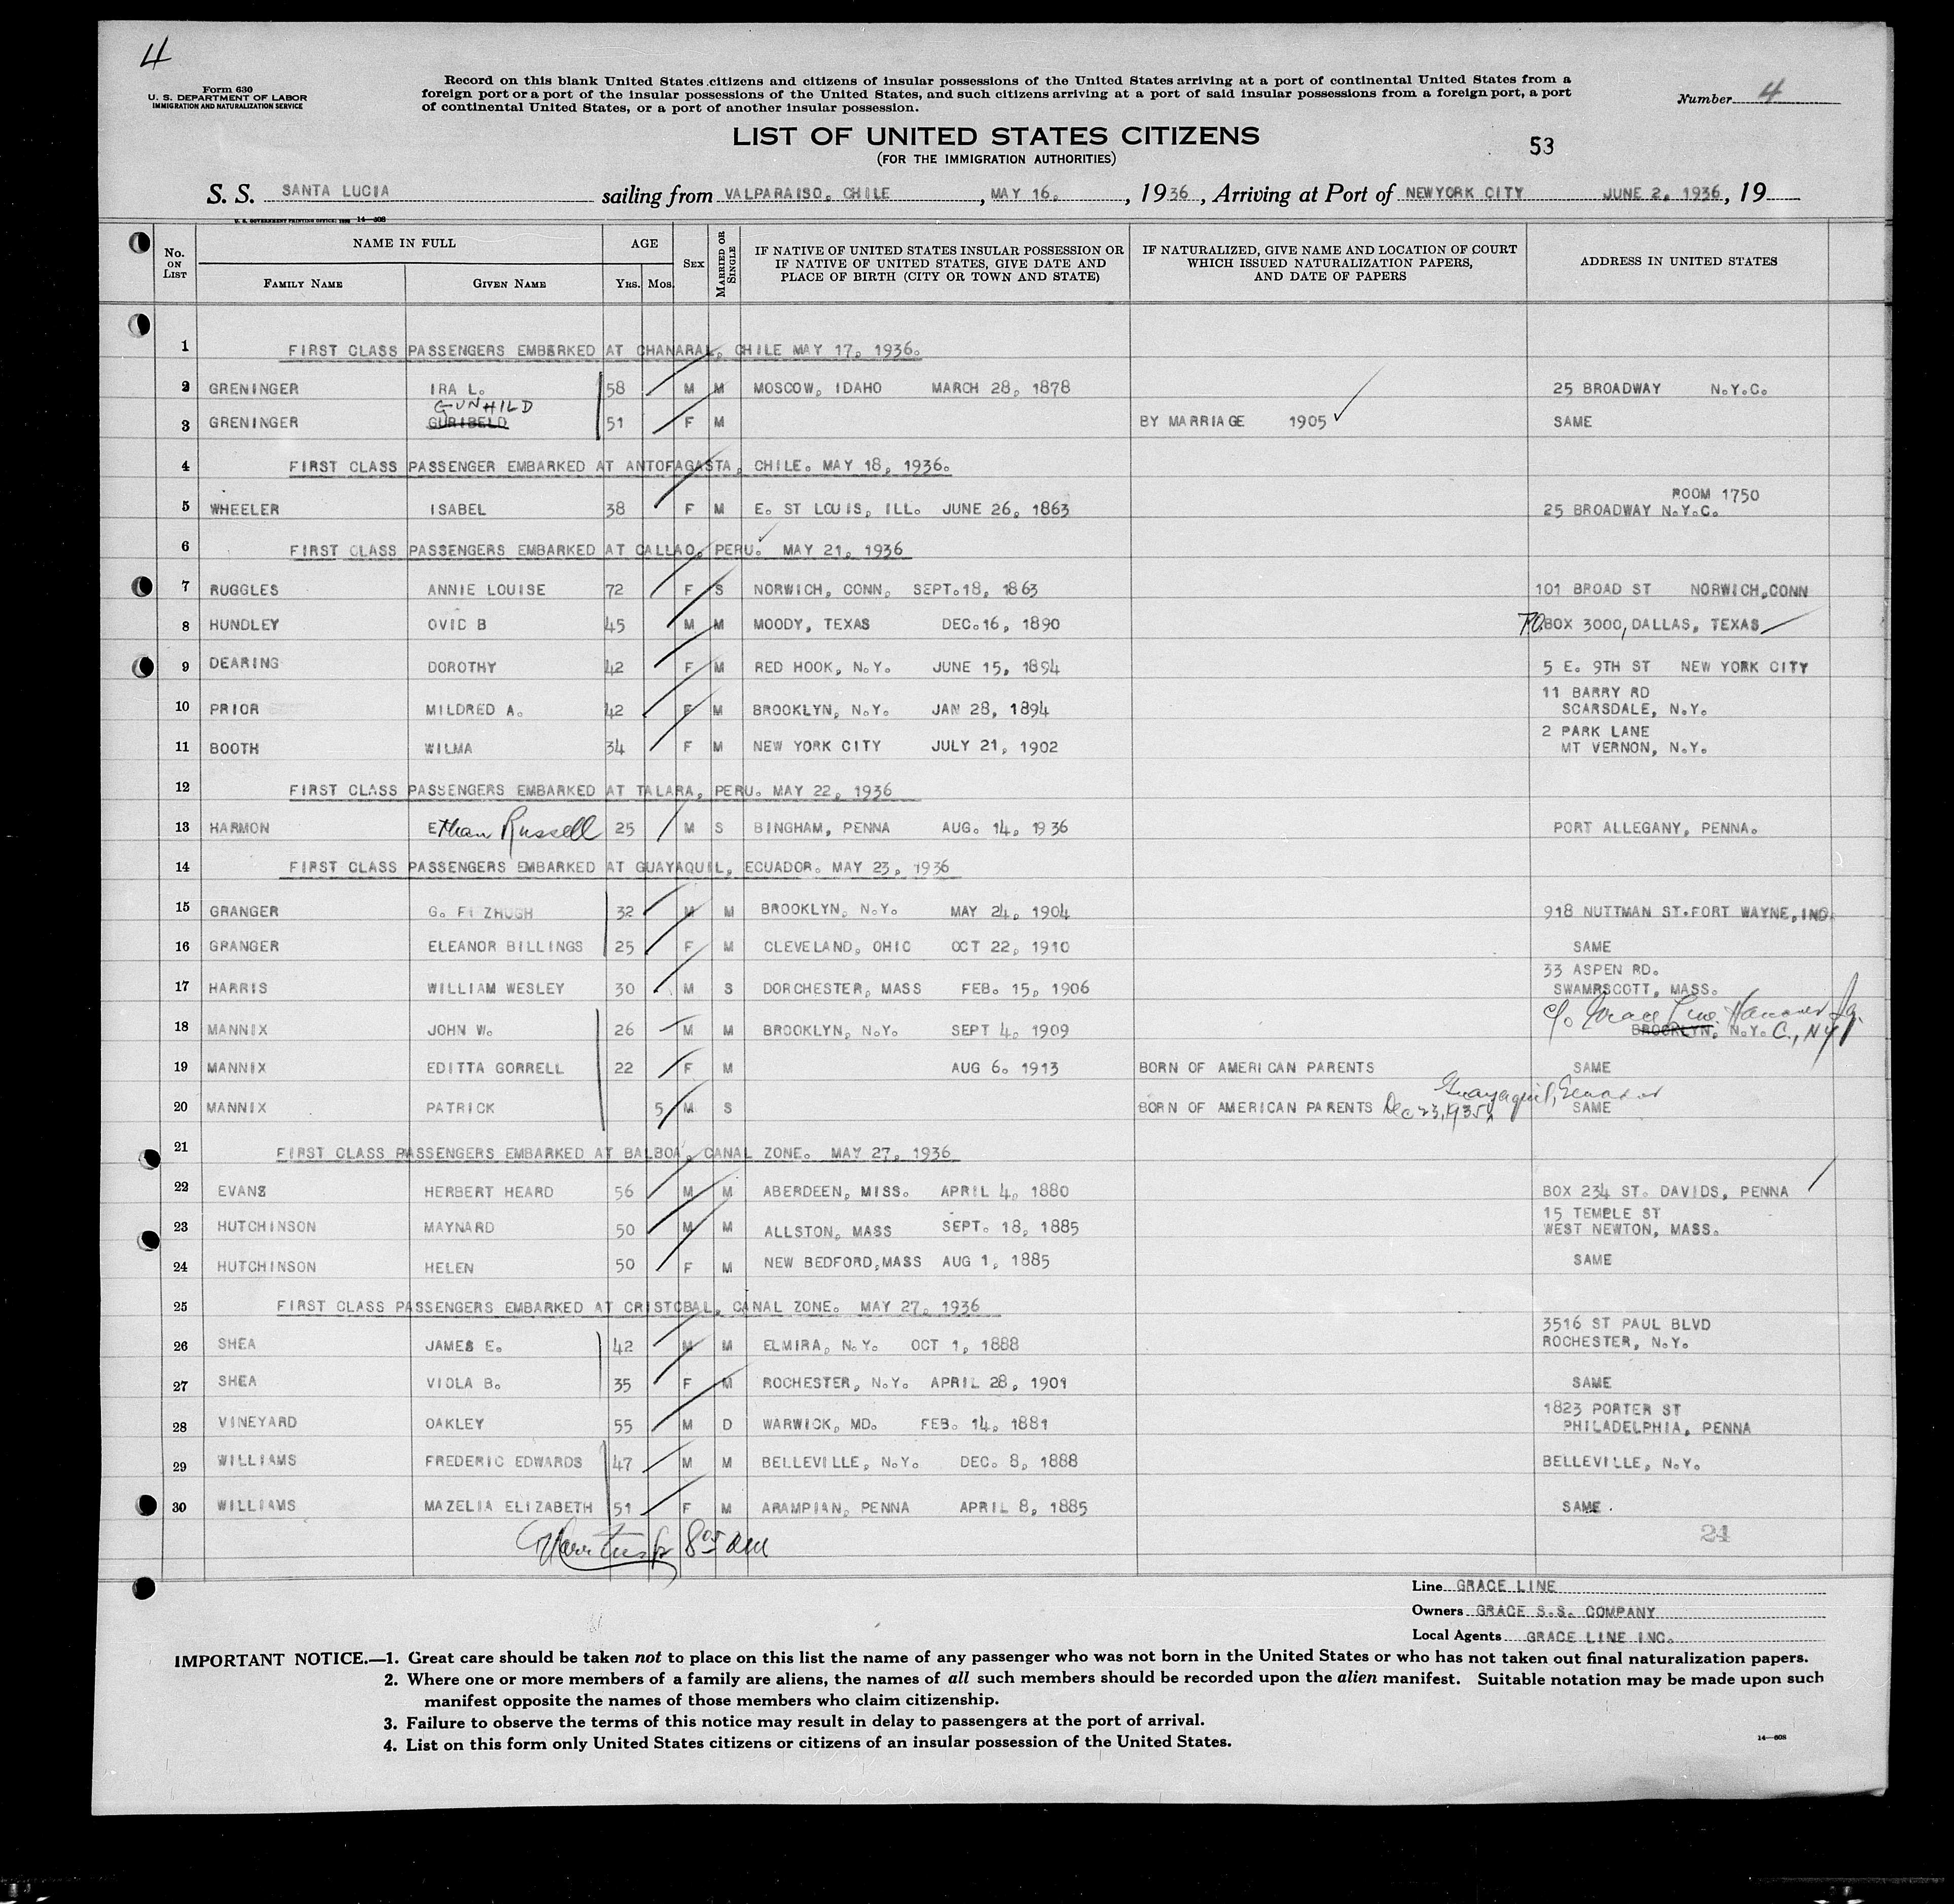 4
Form 630
U. S. DEPARTMENT OF LABOR
IMMIGRATION AND NATURALIZATION SERVICE
Record on this blank United States citizens and citizens of insular possessions of the United States arriving at a port of continental United States from a
foreign port or a port of the insular possessions of the United States, and such citizens arriving at a port of said insular possessions from a foreign port, a port
of continental United States, or a port of another insular possession.
Number 4
LIST OF UNITED STATES CITIZENS
(FOR THE IMMIGRATION AUTHORITIES)
53
S. S. SANTA LUCIA sailing from VALPARAISO, CHILE, MAY 16, , 1936, Arriving at Port of NEWYORK CITY JUNE 2, 1936, 19
U. S. GOVERNMENT PRINTING OFFICE: 14—608
No. ON LIST NAME IN FULL AGE SEX MARRIED OR SINGLE IF NATIVE OF UNITED STATES INSULAR POSSESSION OR IF NATIVE OF UNITED STATES, GIVE DATE AND PLACE OF BIRTH (CITY OR TOWN AND STATE) IF NATURALIZED, GIVE NAME AND LOCATION OF COURT WHICH ISSUED NATURALIZATION PAPERS, AND DATE OF PAPERS ADDRESS IN UNITED STATES
FAMILY NAME GIVEN NAME YRS. MOS.
1 FIRST CLASS PASSENGERS EMBARKED AT CHANARAL, CHILE MAY 17, 1936.
2 GRENINGER IRA L. 58 M M MOSCOW, IDAHO MARCH 28, 1878 25 BROADWAY N.Y.C.
GUNHILD
3 GRENINGER GURIBELD 51 F M BY MARRIAGE 1905 SAME
4 FIRST CLASS PASSENGER EMBARKED AT ANTOFAGASTA, CHILE. MAY 18, 1936.
ROOM 1750
5 WHEELER ISABEL 38 F M E. ST LOUIS, ILL. JUNE 26, 1863 25 BROADWAY N.Y.C.
6 FIRST CLASS PASSENGERS EMBARKED AT CALLAO, PERU. MAY 21, 1936
7 RUGGLES ANNIE LOUISE 72 F S NORWICH, CONN, SEPT.18, 1863 101 BROAD ST NORWICH,CONN
8 HUNDLEY OVIC B 45 M M MOODY, TEXAS DEC.16, 1890 P.O.BOX 3000, DALLAS, TEXAS
9 DEARING DOROTHY 42 F M RED HOOK, N.Y. JUNE 15, 1894 5 E. 9TH ST NEW YORK CITY
11 BARRY RD
10 PRIOR MILDRED A. 42 F M BROOKLYN, N.Y. JAN 28, 1894 SCARSDALE, N.Y.
2 PARK LANE
11 BOOTH WILMA 34 F M NEW YORK CITY JULY 21, 1902 MT VERNON, N.Y.
12 FIRST CLASS PASSENGERS EMBARKED AT TALARA, PERU. MAY 22, 1936
13 HARMON Ethan Russell 25 M S BINGHAM, PENNA AUG. 14, 1936 PORT ALLEGANY, PENNA.
14 FIRST CLASS PASSENGERS EMBARKED AT GUAYAQUIL, ECUADOR. MAY 23, 1936
15 GRANGER G. FI ZHUGH 32 M M BROOKLYN, N.Y. MAY 24, 1904 918 NUTTMAN ST.FORT WAYNE,IND.
16 GRANGER ELEANOR BILLINGS 25 F M CLEVELAND, OHIO OCT 22, 1910 SAME
33 ASPEN RD.
17 HARRIS WILLIAM WESLEY 30 M S DORCHESTER, MASS FEB. 15, 1906 SWAMPSCOTT, MASS.
c/o Grace Line, Hanover Sq.
18 MANNIX JOHN W. 26 M M BROOKLYN, N.Y. SEPT 4, 1909 BROOKLYN, N.Y. C., NY
19 MANNIX EDITTA GORRELL 22 F M AUG 6. 1913 BORN OF AMERICAN PARENTS SAME
Guayaquil, Ecuador
20 MANNIX PATRICK 5 M S BORN OF AMERICAN PARENTS Dec 23, 1935 SAME
21 FIRST CLASS PASSENGERS EMBARKED AT BALBOA, CANAL ZONE. MAY 27, 1936
22 EVANS HERBERT HEARD 56 M M ABERDEEN, MISS. APRIL 4, 1880 BOX 234 ST. DAVIDS, PENNA
15 TEMPLE ST
23 HUTCHINSON MAYNARD 50 M M ALLSTON, MASS SEPT. 18, 1885 WEST NEWTON, MASS.
24 HUTCHINSON HELEN 50 F M NEW BEDFORD,MASS AUG 1, 1885 SAME
25 FIRST CLASS PASSENGERS EMBARKED AT CRISTOBAL, CANAL ZONE. MAY 27, 1936
3516 ST PAUL BLVD
26 SHEA JAMES E. 42 M M ELMIRA, N.Y. OCT 1, 1888 ROCHESTER, N.Y.
27 SHEA VIOLA B. 35 F M ROCHESTER, N.Y. APRIL 28, 1901 SAME
1823 PORTER ST
28 VINEYARD OAKLEY 55 M D WARWICK, MD. FEB. 14, 1881 PHILADELPHIA, PENNA
29 WILLIAMS FREDERIC EDWARDS 47 M M BELLEVILLE, N.Y. DEC. 8, 1888 BELLEVILLE, N.Y.
30 WILLIAMS MAZELIA ELIZABETH 51 F M ARAMPIAN, PENNA APRIL 8, 1885 SAME.
8 05 am
24
Line GRACE LINE
Owners GRACE S.S. COMPANY
Local Agents GRACE LINE INC.
IMPORTANT NOTICE.—1. Great care should be taken not to place on this list the name of any passenger who was not born in the United States or who has not taken out final naturalization papers.
2. Where one or more members of a family are aliens, the names of all such members should be recorded upon the alien manifest. Suitable notation may be made upon such
manifest opposite the names of those members who claim citizenship.
3. Failure to observe the terms of this notice may result in delay to passengers at the port of arrival.
4. List on this form only United States citizens or citizens of an insular possession of the United States.
14—608